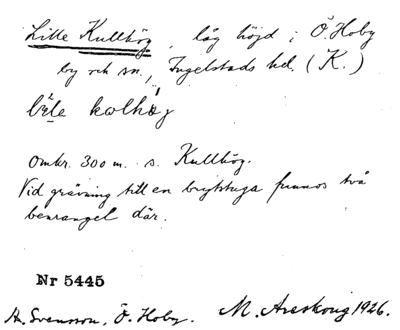 Lille Kullhög, låg höjd i Ö. Hoby
by och sn., Ingelstads hd. (K.)
Omkr. 300 m. s. Kullhög.
Vid grävning till en brytstuga funnos två
benrangel där.
Nr 5445
A. Svensson, Ö. Hoby. M. Areskoug 1926.